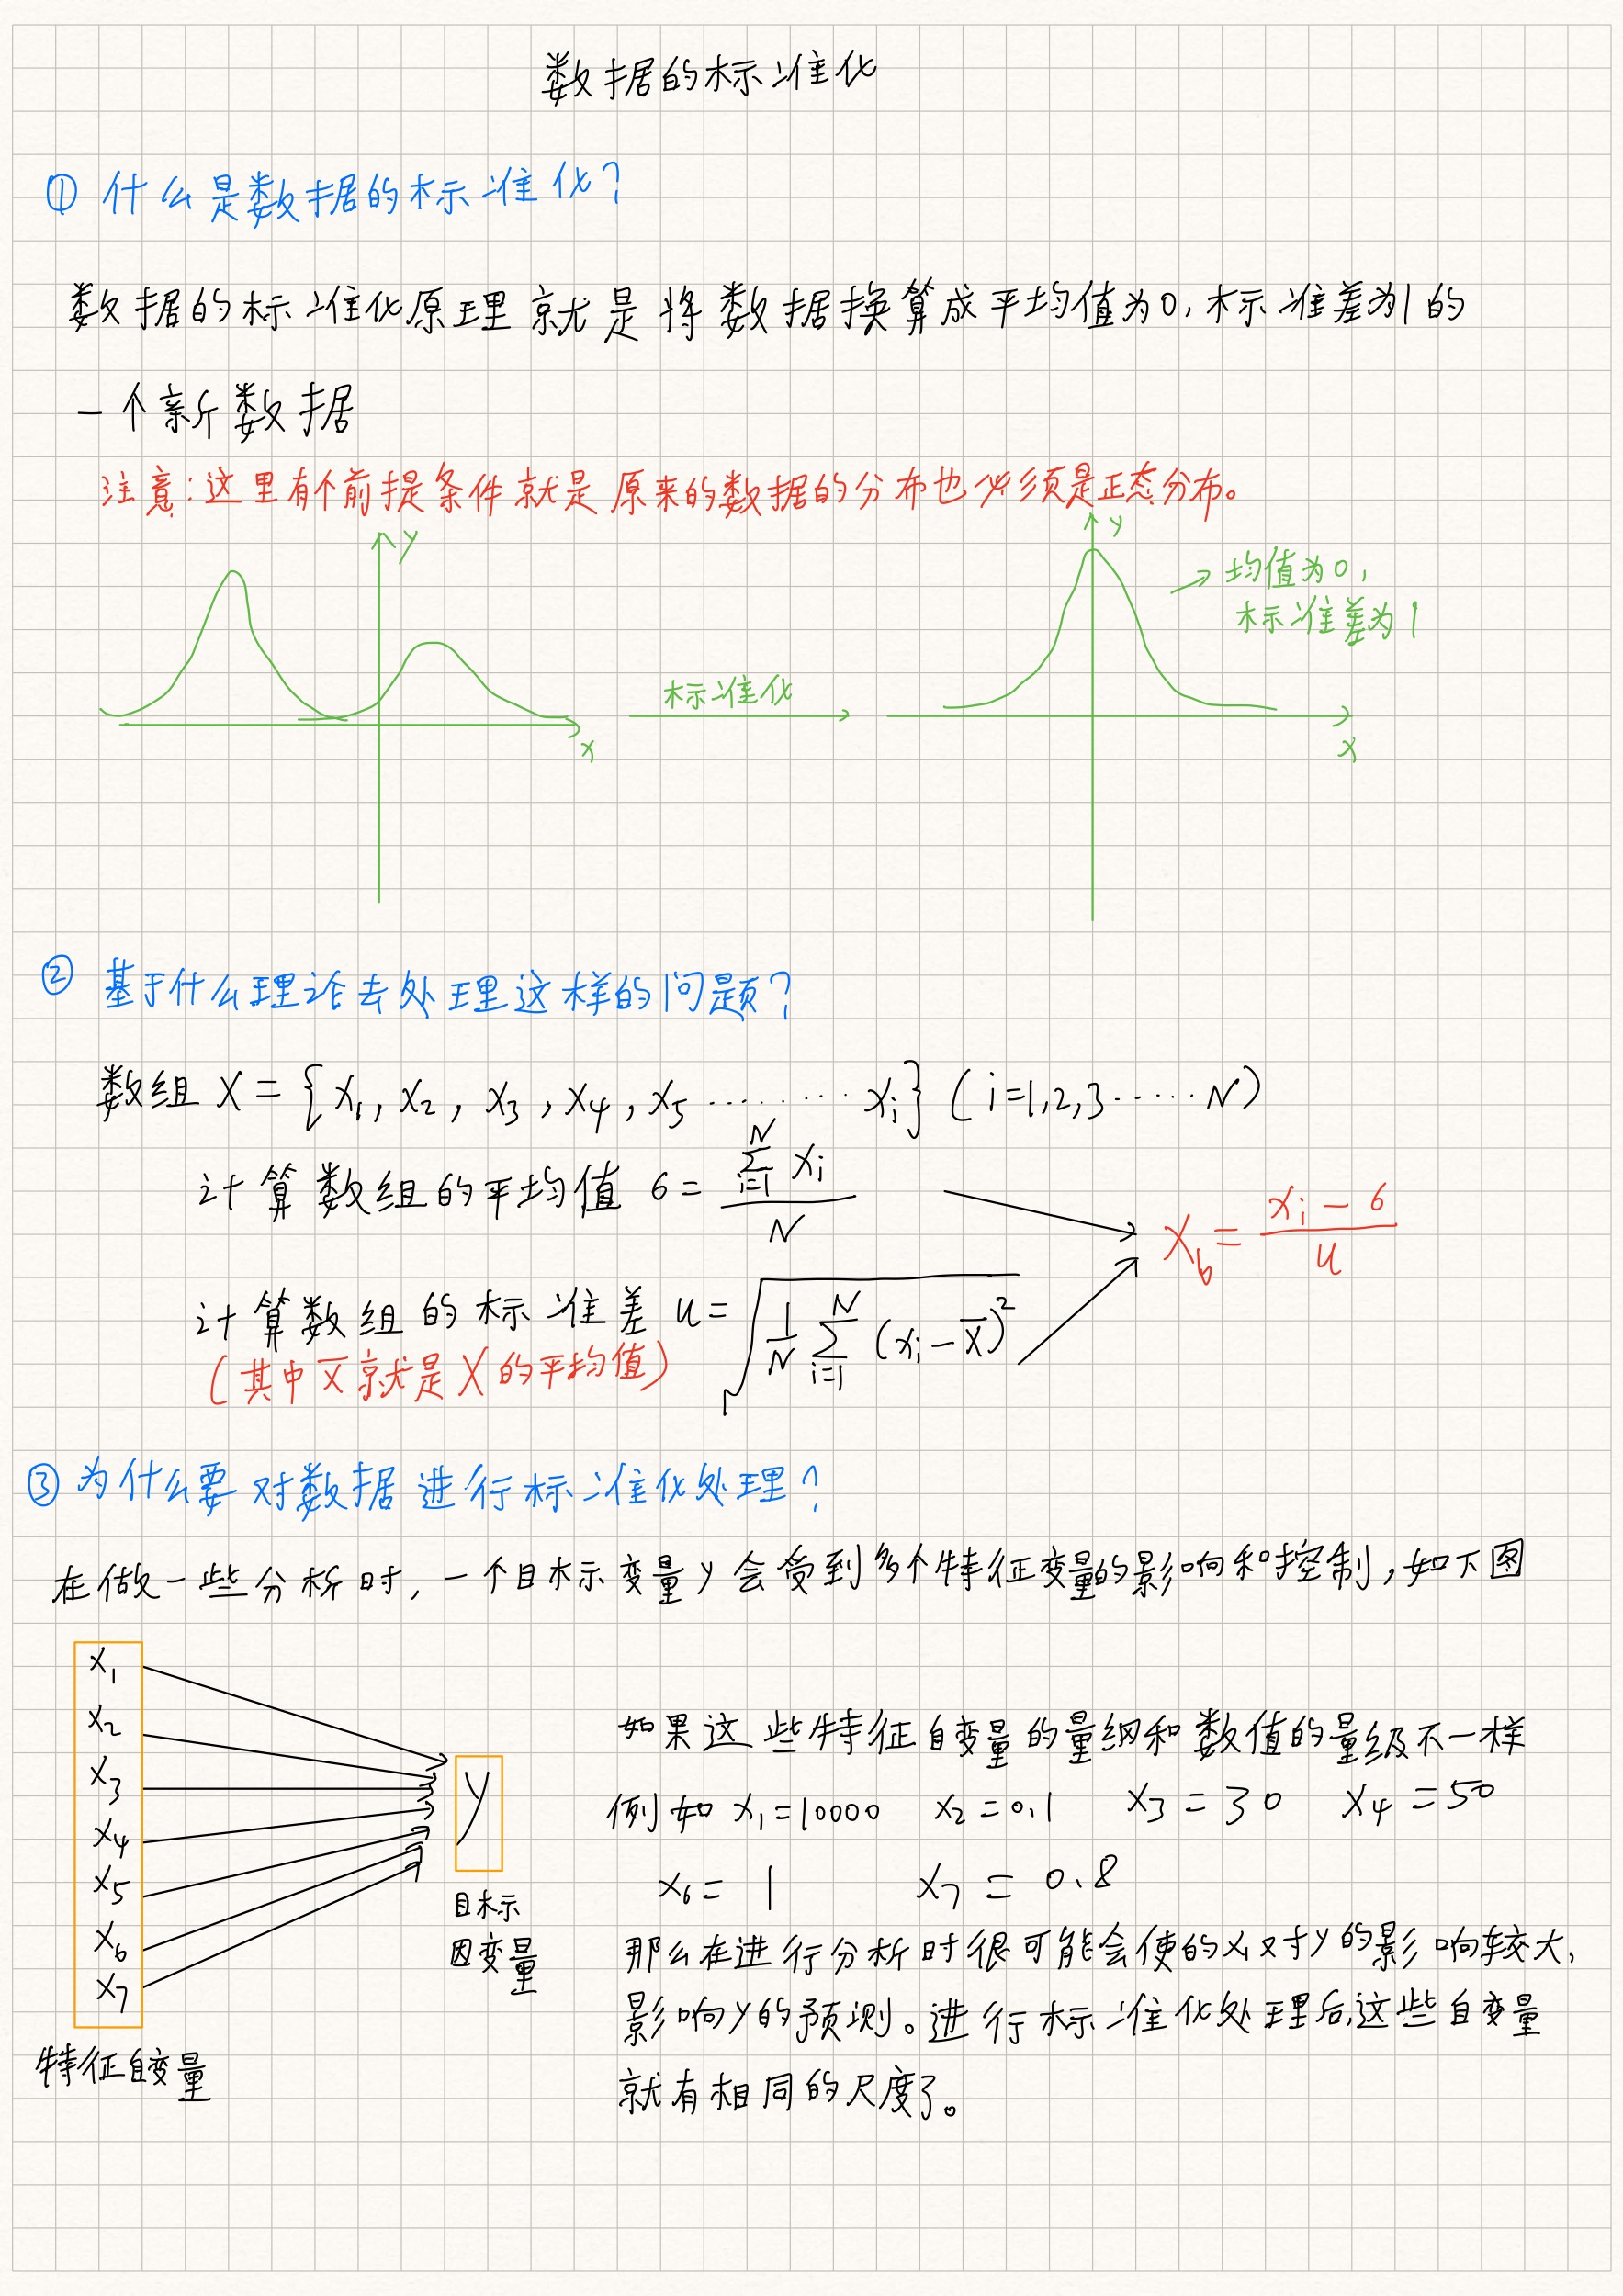 数据的标准化
① 什么是数据的标准化？
数据的标准化原理就是将数据换算成平均值为0，标准差为1的
一个新数据
注意：这里有个前提条件就是原来的数据的分布也必须是正态分布。
y
x
标准化
y
→ 均值为0，
标准差为1
x
② 基于什么理论去处理这样的问题？
数组 X = {x₁, x₂, x₃, x₄, x₅ ········· xᵢ} (i=1,2,3·····N)
计算数组的平均值 6 = \frac{\sum_{i=1}^{N} x_i}{N}
X_b = \frac{x_i - 6}{u}
计算数组的标准差 u = \sqrt{\frac{1}{N} \sum_{i=1}^{N} (x_i - \overline{X})^2}
(其中 x̅ 就是 X 的平均值)
③ 为什么要对数据进行标准化处理？
在做一些分析时，一个目标变量y会受到多个特征变量的影响和控制，如下图
x₁
x₂
x₃
x₄
x₅
x₆
x₇
特征自变量
y
目标
因变量
如果这些特征自变量的量纲和数值的量级不一样
例如 x₁=10000 x₂=0.1 x₃=30 x₄=50
x₆=1 x₇=0.8
那么在进行分析时很可能会使的x₁对y的影响较大，
影响y的预测。进行标准化处理后，这些自变量
就有相同的尺度了。